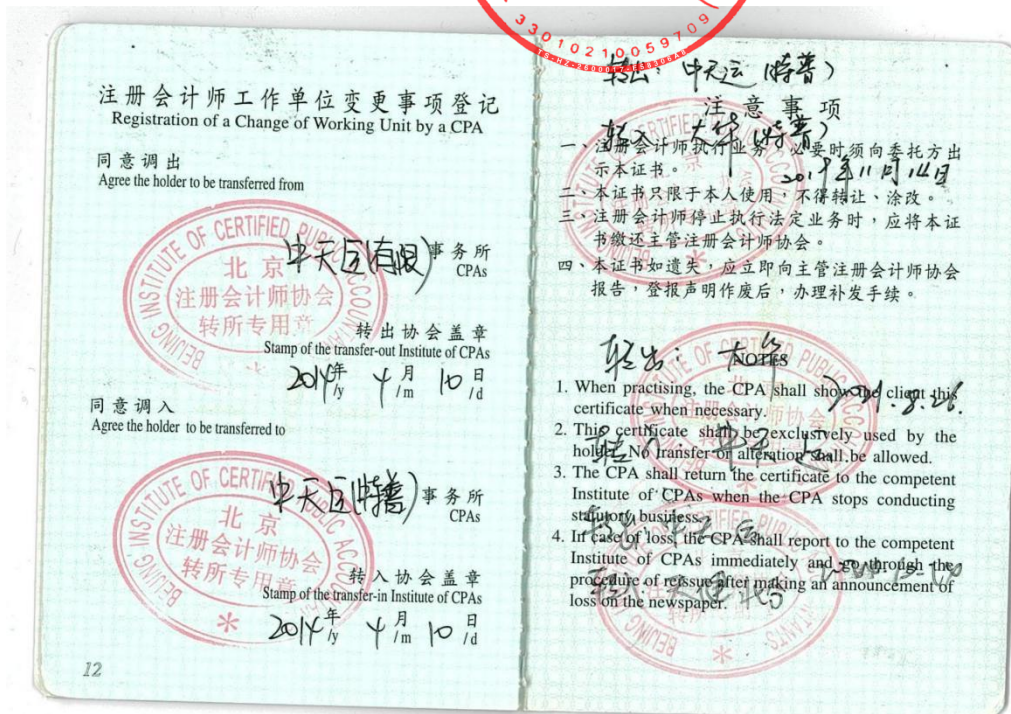 注册会计师工作单位变更事项登记
Registration of a Change of Working Unit by a CPA
同意调出
Agree the holder to be transferred from
中天运(有限)事务所
CPAs
BEIJING INSTITUTE OF CERTIFIED PUBLIC ACCOUNTANTS
北京
注册会计师协会
转所专用章
转出协会盖章
Stamp of the transfer-out Institute of CPAs
2014年 4月 10日
/y /m /d
同意调入
Agree the holder to be transferred to
中天运(特普)事务所
CPAs
BEIJING INSTITUTE OF CERTIFIED PUBLIC ACCOUNTANTS
北京
注册会计师协会
转所专用章
转入协会盖章
Stamp of the transfer-in Institute of CPAs
2014年 4月 10日
/y /m /d
12
33010210059709
转出:中天运(特普)
注意事项
转入 大华(特普)
一、注册会计师执行业务,必要时须向委托方出
示本证书。
2019年11月14日
二、本证书只限于本人使用,不得转让、涂改。
三、注册会计师停止执行法定业务时,应将本证
书缴还主管注册会计师协会。
四、本证书如遗失,应立即向主管注册会计师协会
报告,登报声明作废后,办理补发手续。
转出:大华
NOTES
1. When practising, the CPA shall show the client this
certificate when necessary.
2. This certificate shall be exclusively used by the
holder. No transfer or alteration shall be allowed.
3. The CPA shall return the certificate to the competent
Institute of CPAs when the CPA stops conducting
statutory business.
4. In case of loss, the CPA shall report to the competent
Institute of CPAs immediately and go through the
procedure of reissue after making an announcement of
loss on the newspaper.